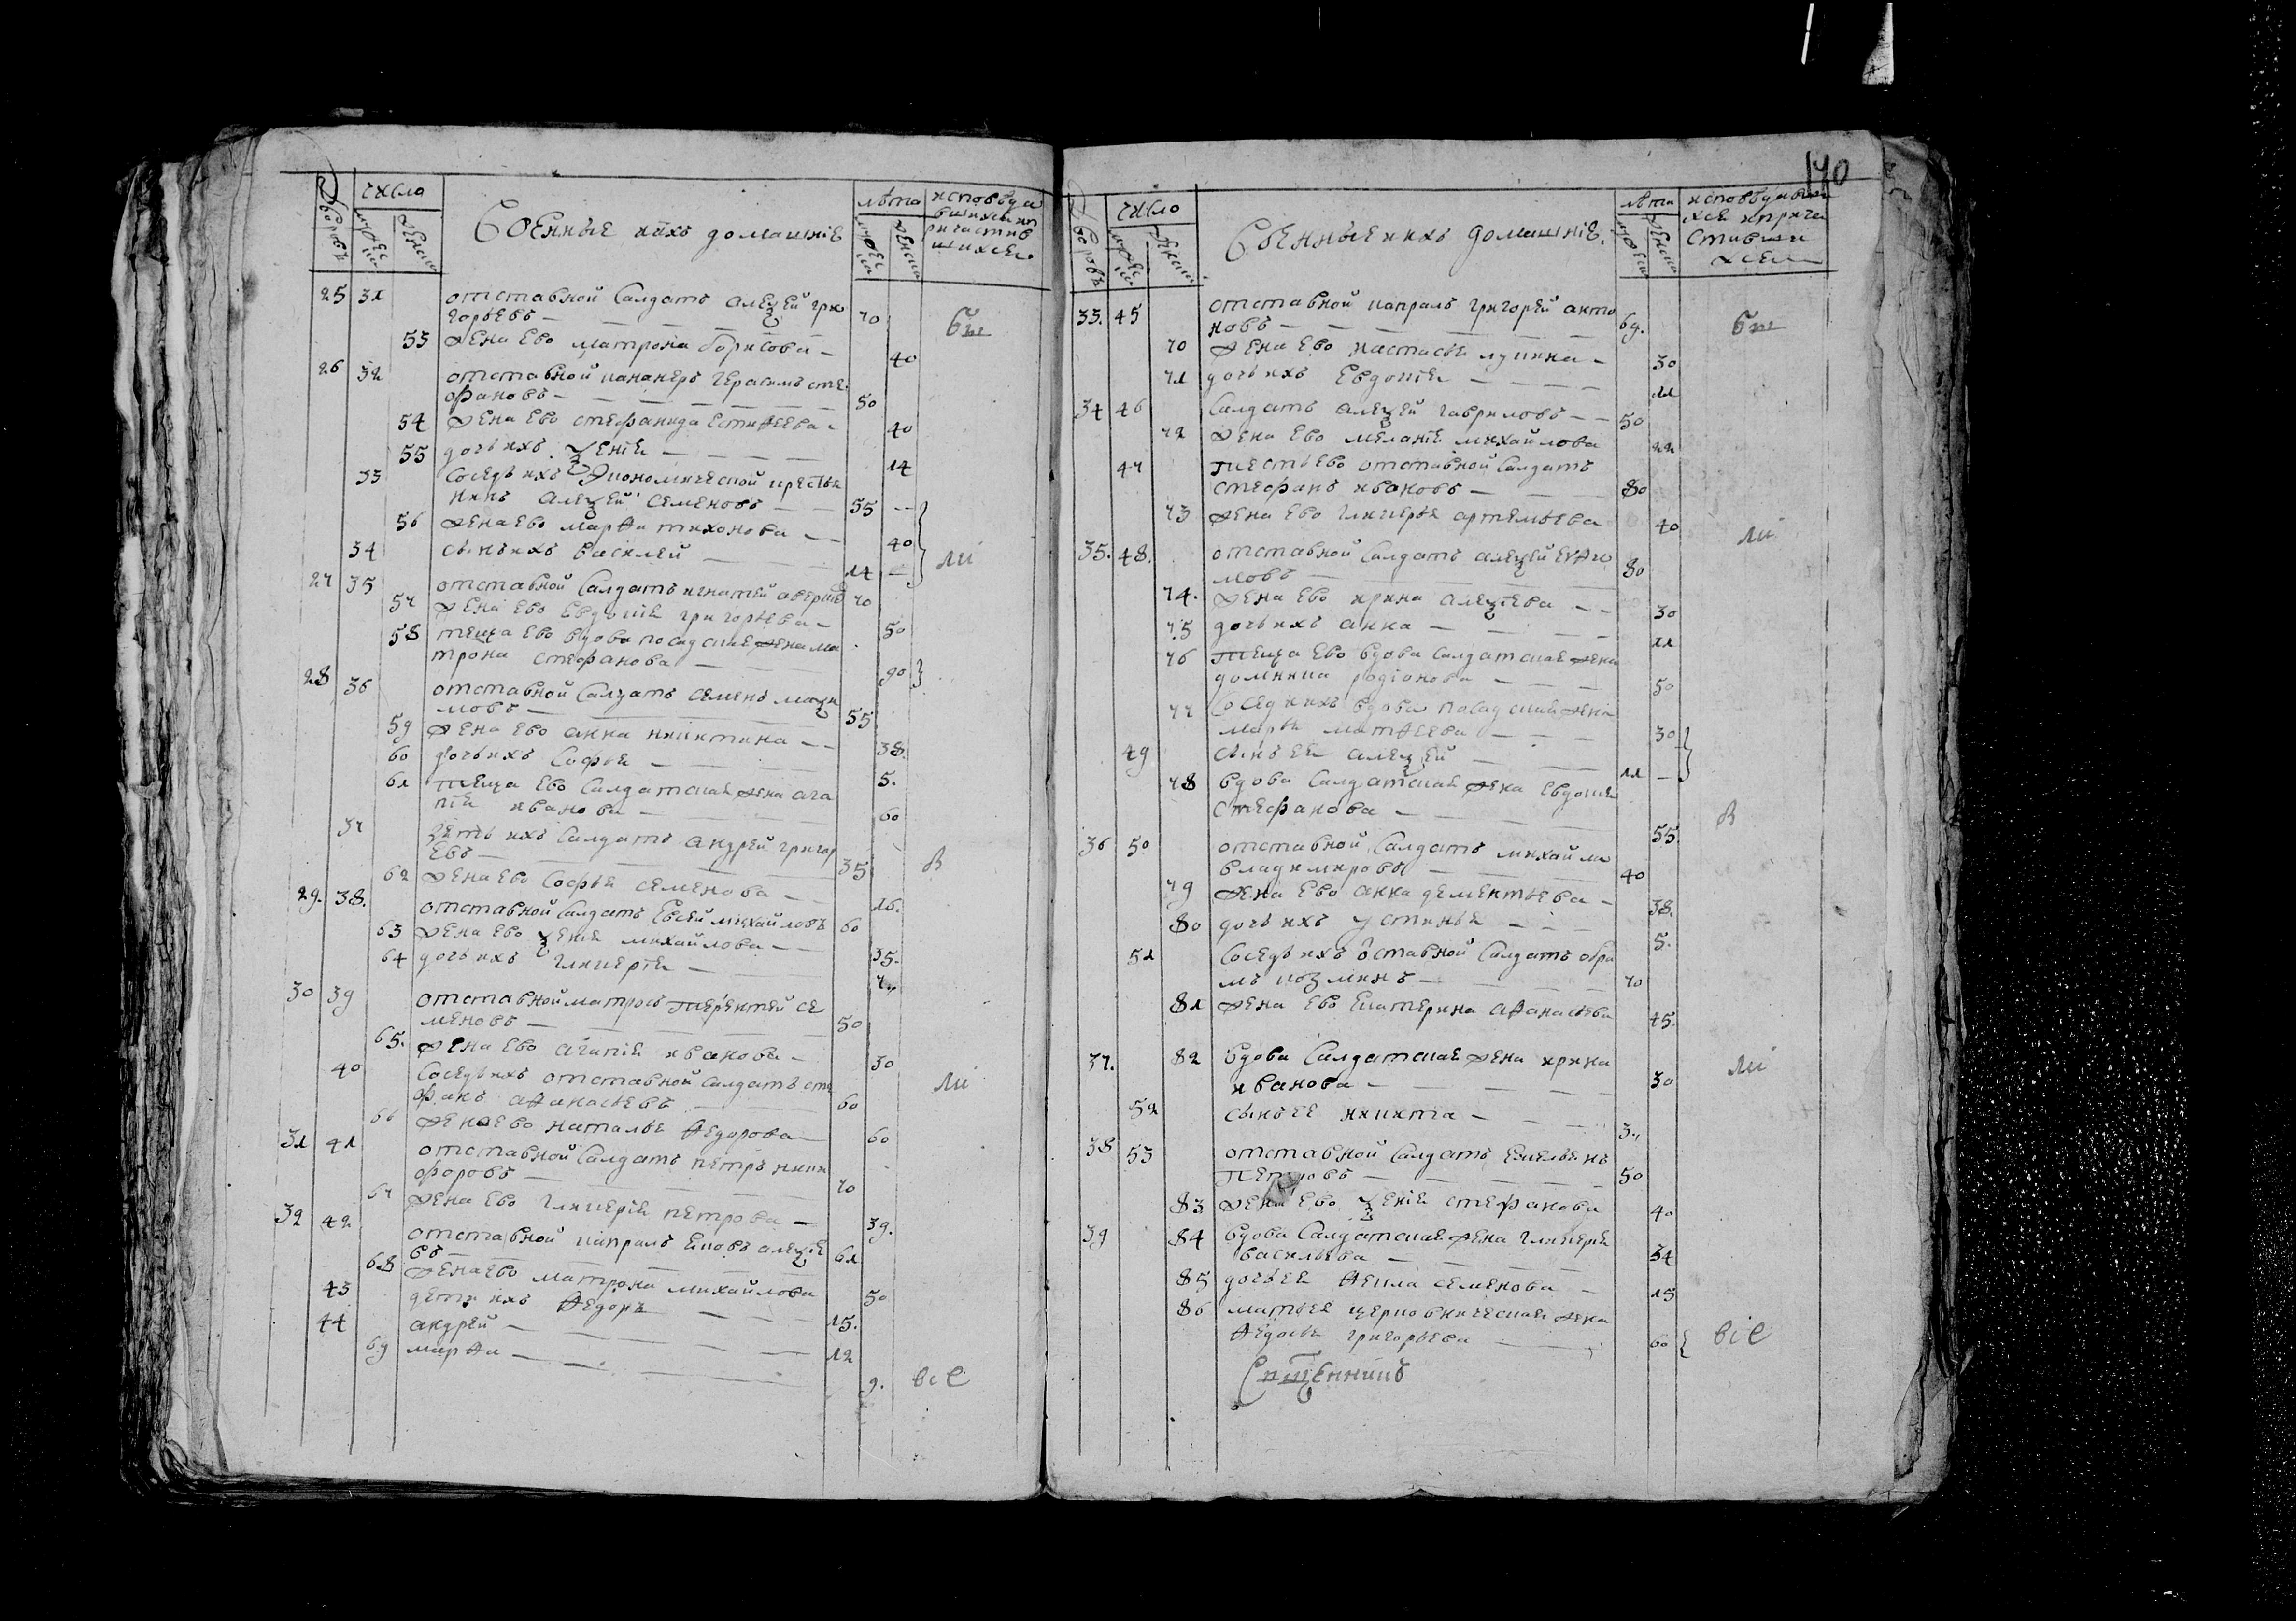 число
лѣта
исповѣдо
дворовъ
мужес
женска
Военные ихъ домашніе
вшихся и п
ричастив
шихся
25 31 отставной Салдатъ алеѯей гри
горьевъ — 70
бы
53 жена ево матрона борисова — 40
26 32 отставной кананеръ герасимъ сте
фановъ — 50
54 жена ево стефанида естифеева 40
55 дочь ихъ ѯенія — 14
33 Соседъ ихъ Экономической крестья
нинъ алеѯей семеновъ — 55
56 жена ево марѳа тихонова — 40
34 сынъ ихъ василей — 14
ли
27 35 отставной Салдатъ игнатей аверкіе 70
57 жена ево евдокия григорьева — 50
58 теща ево вдова посадская жена ма
трона стефанова — 90
28 36 отставной Салдатъ семенъ маѯи
мовъ — 55
59 жена ево анна никитина — 38.
60 дочь ихъ Софья — 5.
61 теща ево Салдатская жена ага
пія иванова — 60
37 Зять ихъ Салдатъ андрей григор
евъ — 35
я
62 жена ево Софья семенова — 16.
29. 38. отставной Салдатъ Евсей михайловъ 60
63 жена ево ѯенія михайлова — 35.
64 дочь ихъ гликерія — 7
30 39 отставной матросъ терентей се
меновъ — 50
65. жена ево агапія иванова — 30
40 Соседъ ихъ отставной салдатъ сте
фанъ аѳанасьевъ — 60
ли
66 жена ево наталья ѳедорова 60
31 41 отставной Салдатъ петръ ники
форовъ — 70
67 жена ево гликерія петрова — 39.
32 42 отставной капралъ яковъ алеѯіе
въ — 61
68 жена ево матрона михайлова 50
43 дети ихъ ѳедоръ — 15.
44 андрей — 12
69 марѳа — 9.
все
140
число
лѣта
исповѣдывши
дворовъ
мужес
женска
Военные ихъ домашніе.
хся и прича
стивши
хся
33. 45 отставной капралъ григорей анто
новъ — 69.
бы
70 жена ево настасья лукина — 30
71 дочь ихъ Евдокія — 11
34 46 Салдатъ алеѯей гавриловъ — 50
72 жена ево меланія михайлова 22
47 тесть ево отставной Салдатъ
стефанъ ивановъ — 80
73 жена ево гликерья артемьева 40
ли
35. 48. отставной Салдатъ алеѯей
мовъ — 80
74. жена ево ирина алеѯіева — 30
75 дочь ихъ анна — 11
76 теща ево вдова Салдатская жена
доминика родіонова — 50
77 Соседка ихъ вдова посадская жена
марья матѳеева — 30
49 сынъ ея алеѯей — 11
78 вдова Салдатская жена Евдокия
стефанова — 55
я
36 50 отставной Салдатъ михайла
владимировъ — 40
79 жена ево анна дементьева — 38.
80 дочь ихъ устинья — 5.
51 Соседъ ихъ оставной Салдатъ абра
мъ козминъ — 70
81 жена ево Екатерина аѳанасьева 45.
37. 82 вдова Салдатская жена ирина
иванова — 30
ли
52 сынъ ее никита — 3
38 53 отставной Салдатъ Емельянъ
Петровъ — 50
83 жена ево ѯенія стефанова 40
39 84 вдова Салдатская жена гликерья
васильева — 34
85 дочь ея ѳекла семенова — 15
86 мать ея церковническая жена
ѳедосья григорьева — 60
все
Сщенникъ